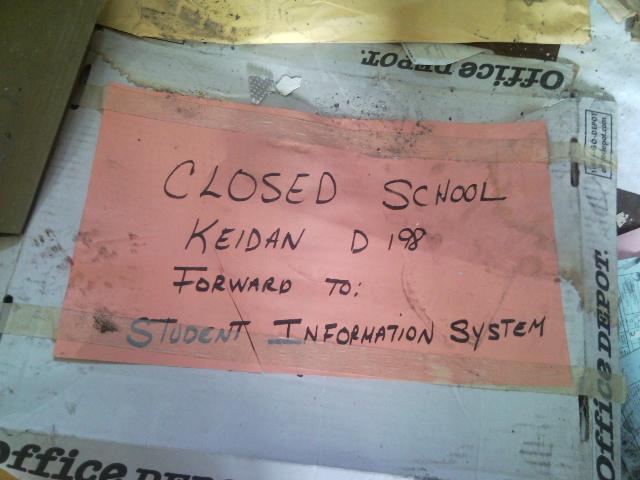 Office DEPOT.
CLOSED SCHOOL
KEIDAN D 198
FORWARD TO:
STUDENT INFORMATION SYSTEM
Office DEPOT.
Office DEPOT